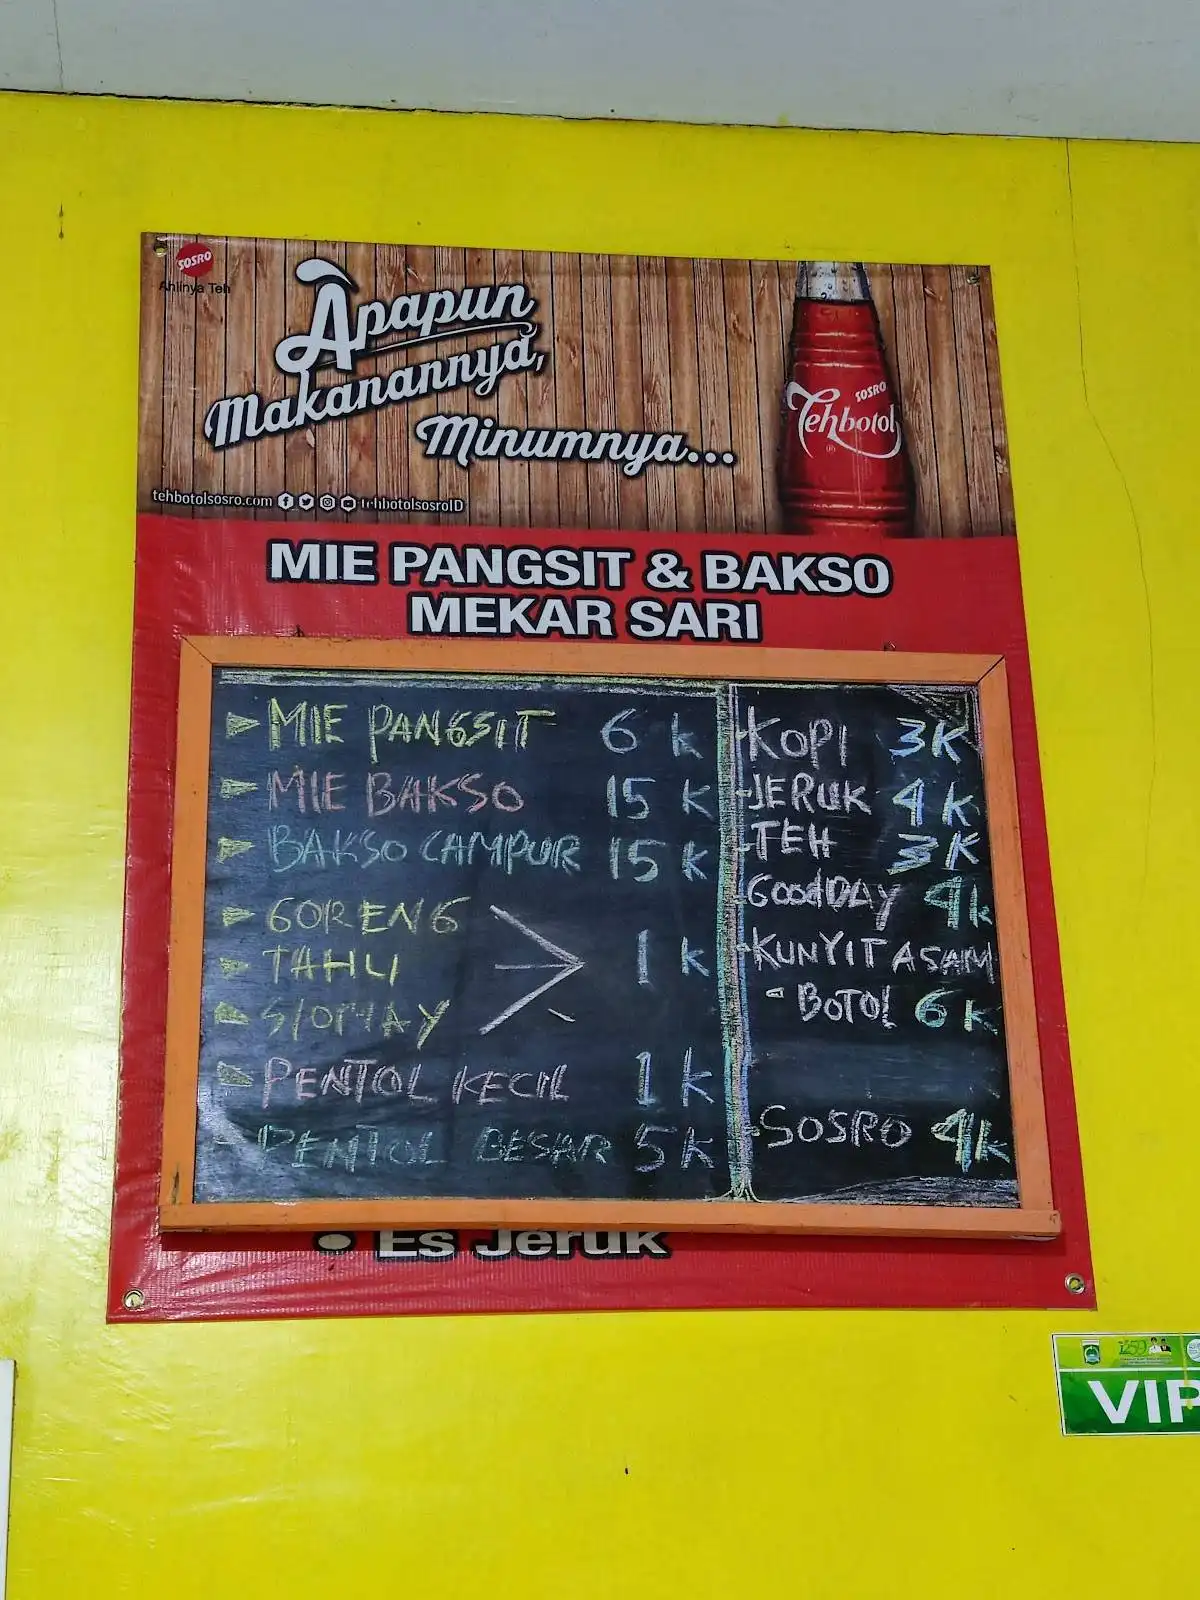 SOSRO
Ahlinya Teh
Apapun
Makanannya,
Minumnya...
SOSRO
Tehbotol
tehbotolsosro.com tehbotolsosroID
MIE PANGSIT & BAKSO
MEKAR SARI
MIE PANGSIT 6 K
MIE BAKSO 15 K
BAKSO CAMPUR 15 K
GORENG
TAHU 1 K
SIOMAY
PENTOL KECIL 1 K
PENTOL BESAR 5 K
KOPI 3K
JERUK 4K
TEH 3K
GOODDAY 4k
KUNYIT ASAM
BOTOL 6 K
SOSRO 4k
• Es Jeruk
VIP